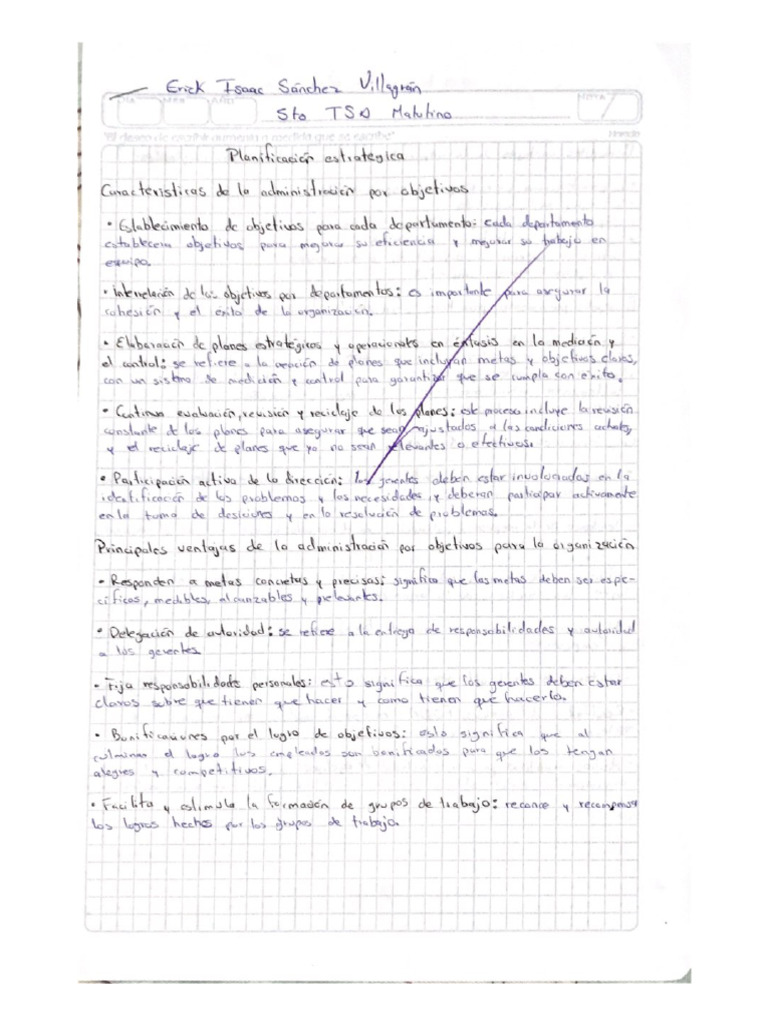 Erick Isaac Sánchez Villagrán
5to TSD Matutino
"El deseo de escribir aumenta a medida que se escribe"
Planificación estrategica
Características de la administración por objetivos
• Establecimiento de objetivos para cada departamento: cada departamento
establecera objetivos para mejorar su eficiencia y mejorar su trabajo en
equipo.
• Interrelación de los objetivos por departamentos: es importante para asegurar la
cohesión y el éxito de la organización.
• Elaboración de planes estratégicos y operacionales en énfasis en la medición y
el control: se refiere a la creación de planes que incluyan metas y objetivos claros,
con un sistema de medición y control para garantizar que se cumpla con éxito.
• Continua evaluación, revisión y reciclaje de los planes: este proceso incluye la revisión
constante de los planes para asegurar que sean ajustados a las condiciones actuales
y el reciclaje de planes que ya no sean relevantes o efectivos.
• Participación activa de la dirección: los gerentes deben estar involucrados en la
identificación de los problemas y los necesidades, y deberan participar activamente
en la toma de desiciones y en la resolución de problemas.
Principales ventajas de la administración por objetivos para la organización
• Responden a metas concretas y precisas: significa que las metas deben ser espe-
cificas, medibles, alcanzables y relevantes.
• Delegación de autoridad: se refiere a la entrega de responsabilidades y autoridad
a los gerentes
• Fija responsabilidade personales: esto significa que los gerentes deben estar
claros sobre que tienen que hacer y como tienen que hacerlo.
• Bonificaciones por el logro de objetivos: esto significa que al
culminar el logro los empleados son bonificados para que los tengan
alegres y competitivos.
• Facilita y estimula la formación de grupos de trabajo: reconce y recompensa
los logros hechos por los grupos de trabajo.